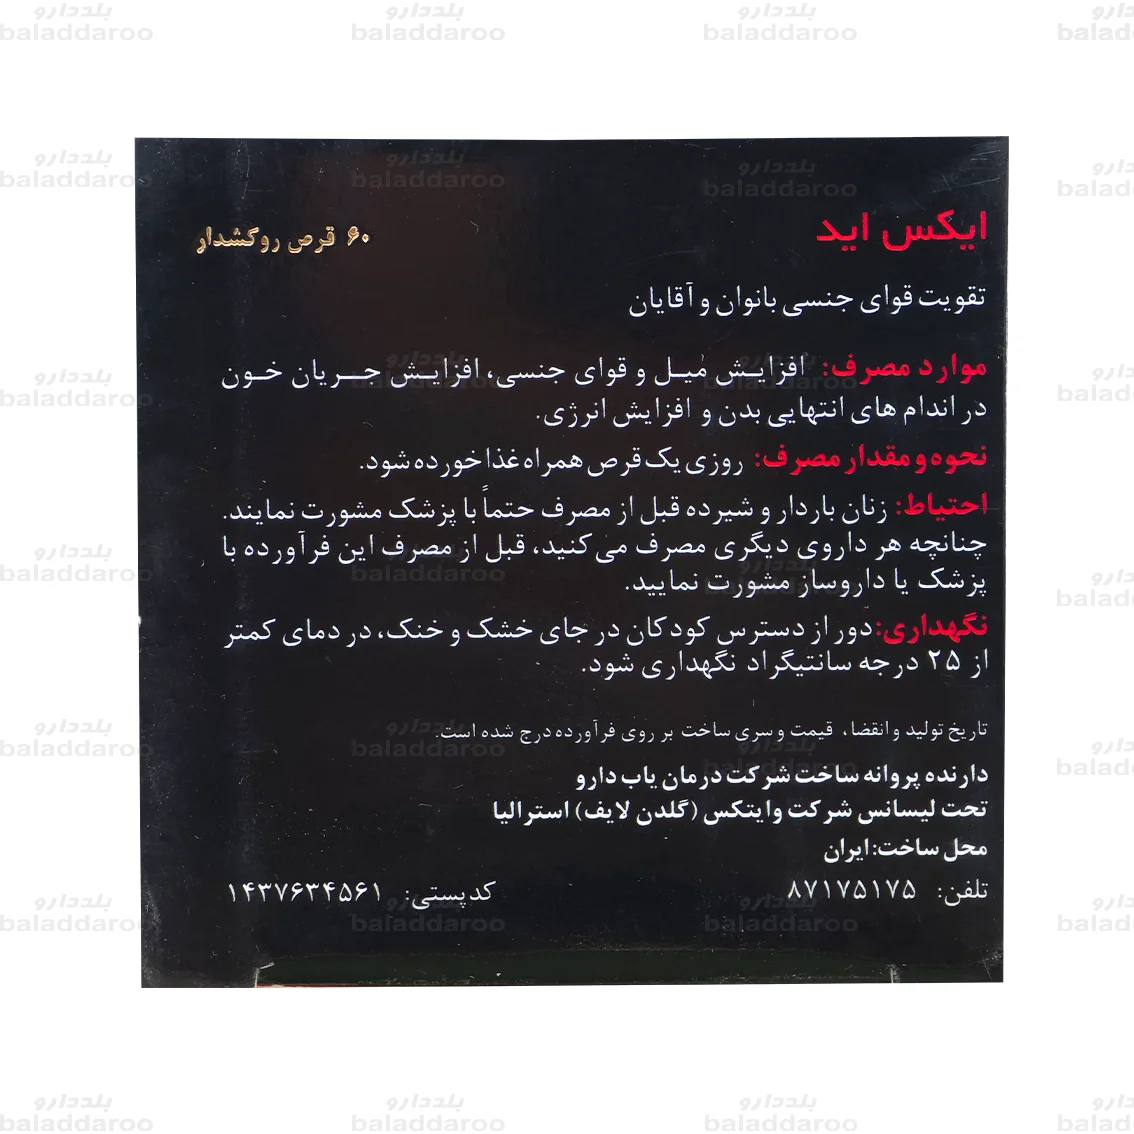 ایکس اید
۶۰ قرص روکشدار
تقویت قوای جنسی بانوان و آقایان
موارد مصرف: افزایش میل و قوای جنسی، افزایش جریان خون
در اندام های انتهایی بدن و افزایش انرژی.
نحوه و مقدار مصرف: روزی یک قرص همراه غذا خورده شود.
احتیاط: زنان باردار و شیرده قبل از مصرف حتماً با پزشک مشورت نمایند.
چنانچه هر داروی دیگری مصرف می کنید، قبل از مصرف این فرآورده با
پزشک یا داروساز مشورت نمایید.
نگهداری: دور از دسترس کودکان در جای خشک و خنک، در دمای کمتر
از ۲۵ درجه سانتیگراد نگهداری شود.
تاریخ تولید و انقضا، قیمت و سری ساخت بر روی فرآورده درج شده است.
دارنده پروانه ساخت شرکت درمان یاب دارو
تحت لیسانس شرکت وایتکس (گلدن لایف) استرالیا
محل ساخت: ایران
تلفن: ۸۷۱۷۵۱۷۵ کدپستی: ۱۴۳۷۶۳۴۵۶۱
بلددارو
baladdaroo